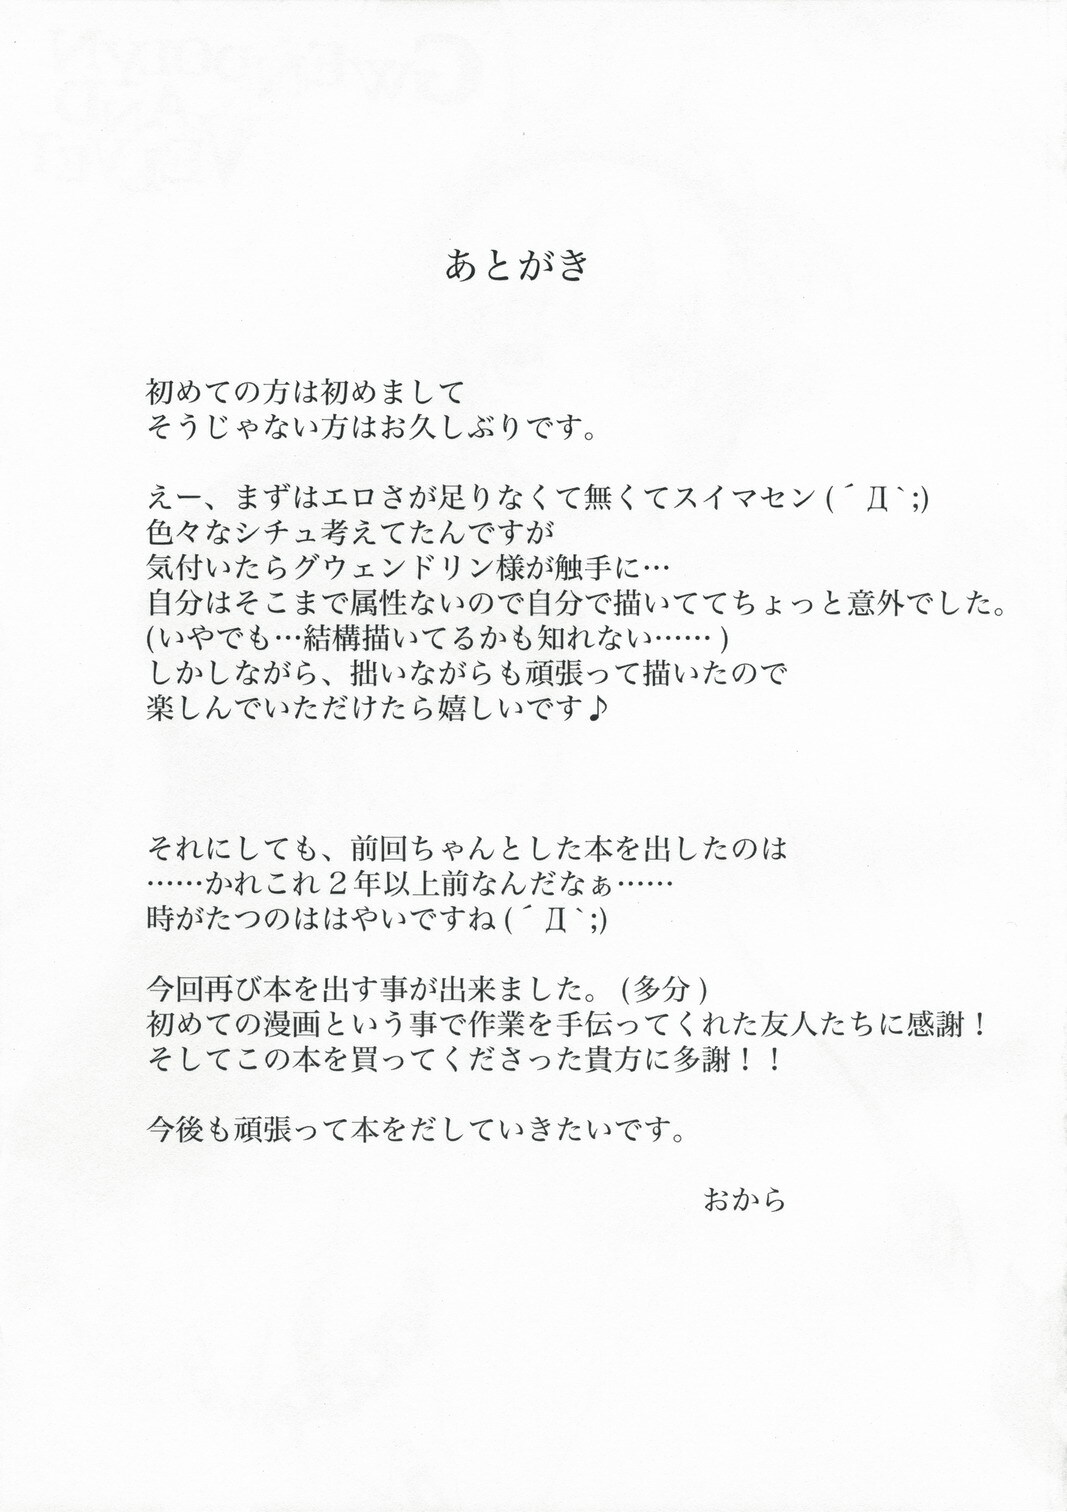 あとがき
初めての方は初めまして
そうじゃない方はお久しぶりです。
えー、まずはエロさが足りなくて無くてスイマセン(´Д`;)
色々なシチュ考えてたんですが
気付いたらグウェンドリン様が触手に…
自分はそこまで属性ないので自分で描いててちょっと意外でした。
(いやでも…結構描いてるかも知れない……)
しかしながら、拙いながらも頑張って描いたので
楽しんでいただけたら嬉しいです♪
それにしても、前回ちゃんとした本を出したのは
……かれこれ2年以上前なんだなぁ……
時がたつのははやいですね(´Д`;)
今回再び本を出す事が出来ました。(多分)
初めての漫画という事で作業を手伝ってくれた友人たちに感謝！
そしてこの本を買ってくださった貴方に多謝！！
今後も頑張って本をだしていきたいです。
おから